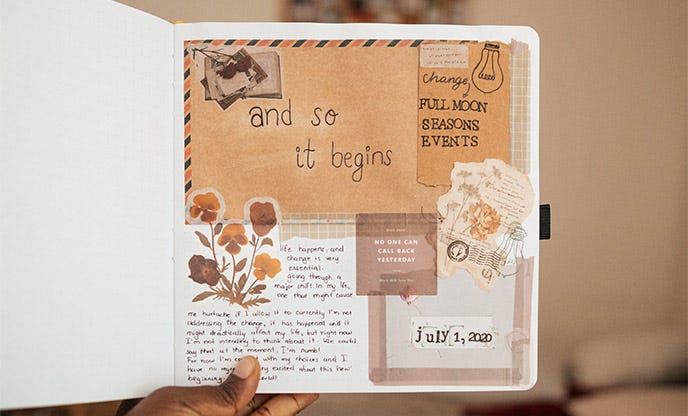 and so
it begins
change,
FULL MOON
SEASONS
EVENTS
life happens, and
change is very
essential.
going through a
major shift in my life,
one that might cause
me heartache if I allow it to currently I'm not
addressing the change, it has happened and it
might drastically affect my life, but right now
I'm not intending to think about it. We could
say that at the moment, I'm numb!
For now I'm with my choices and I
have no excited about this new
beginning
NO ONE CAN
CALL BACK
YESTERDAY
july 1, 2020